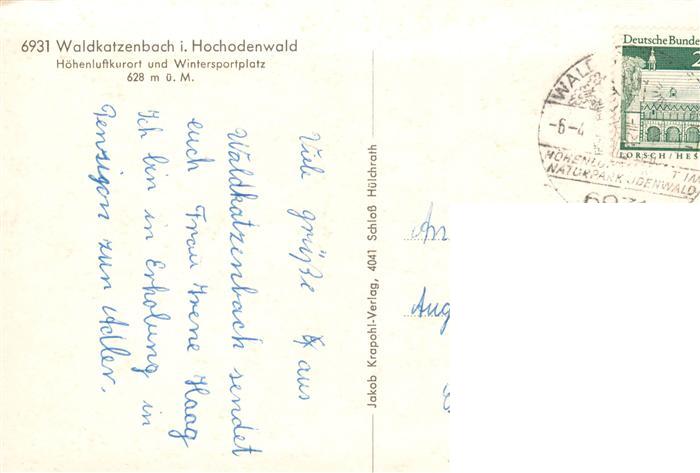 6931 Waldkatzenbach i. Hochodenwald
Höhenluftkurort und Wintersportplatz
628 m ü. M.
Viele grüße aus
Waldkatzenbach sendet
euch Frau Irene Haag
Ich bin in Erholung in
Pensigon zum Adler.
Jakob Krapohl-Verlag, 4041 Schloß Hülchrath
Deutsche Bunde
2
LORSCH/HES
WALD
-6-4
HÖHENLU T IM
NATURPARK ODENWALD
6931
An
Aug